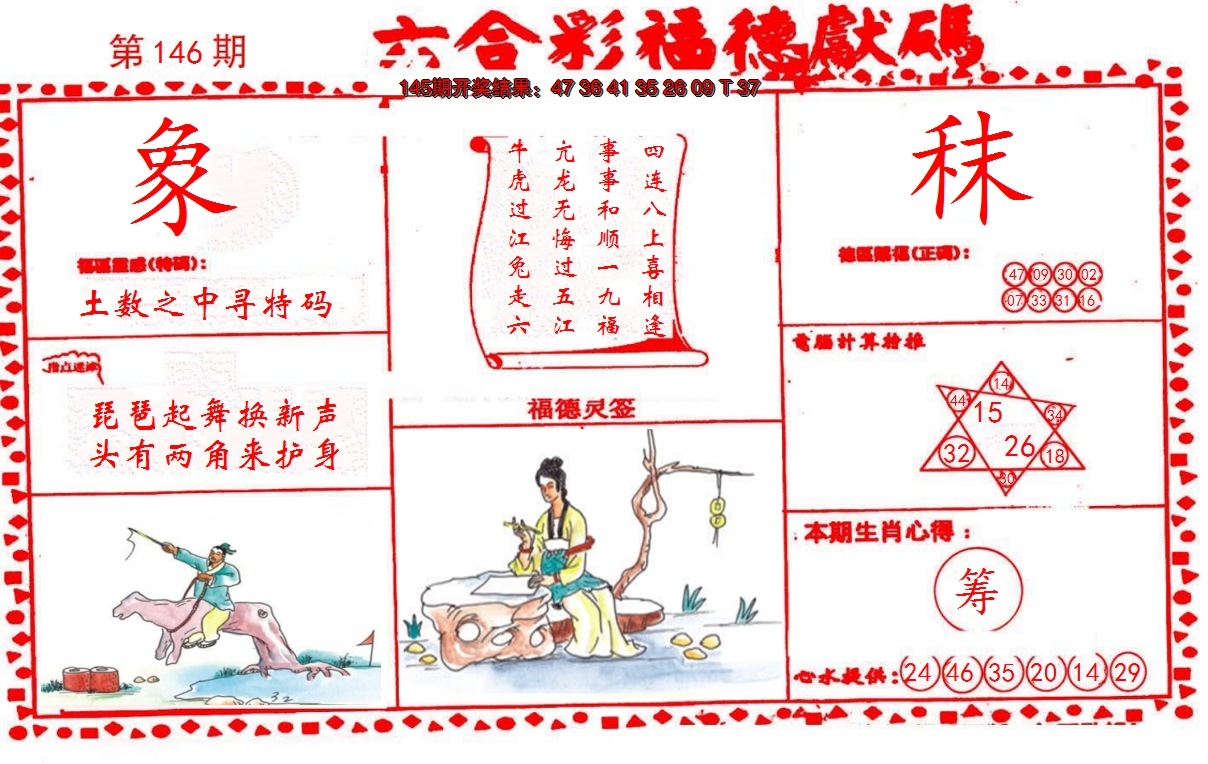 第146期
六合彩福德獻碼
145期开奖结果：47 36 41 35 26 09 T 37
象
福區靈感(特碼)：
土数之中寻特码
指点迷津
琵琶起舞换新声
头有两角来护身
四连八上喜相逢
事事和顺一九福
亢龙无悔过五江
牛虎过江兔走六
福德灵签
秣
德區賜福(正碼)：
47 09 30 02
07 33 31 16
電腦计算恰推
14
44 15 34
32 26 18
30
本期生肖心得：
筹
心水提供：24 46 35 20 14 29